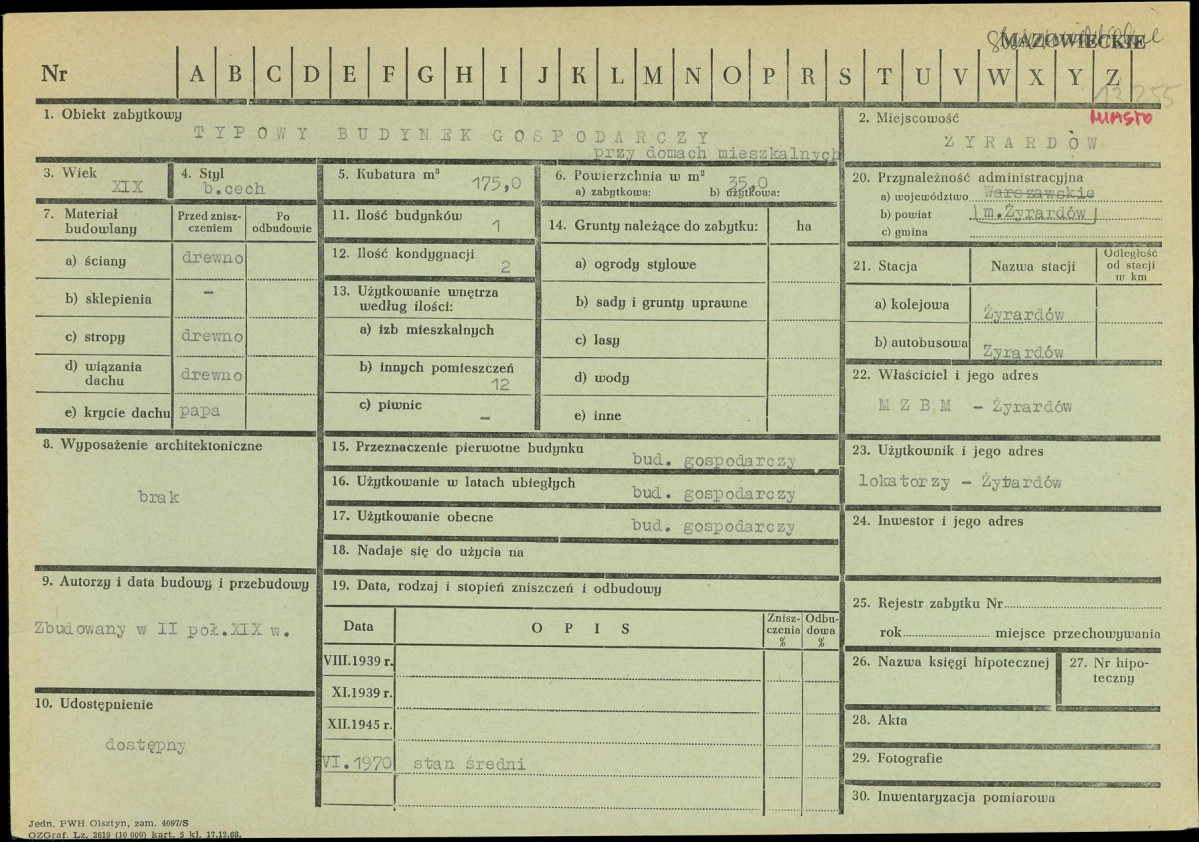 MAZOWIECKIE
Nr A B C D E F G H I J K L M N O P R S T U V W X Y Z
MIASTO
1. Obiekt zabytkowy
TYPOWY BUDYNEK GOSPODARCZY
przy domach mieszkalnych
2. Miejscowość
ŻYRARDÓW
3. Wiek
XIX
4. Styl
b.cech
5. Kubatura m³
175,0
6. Powierzchnia w m²
35,0
a) zabytkowa: b) użytkowa:
20. Przynależność administracyjna
a) województwo Warszawskie
b) powiat m.Żyrardów
c) gmina
7. Materiał budowlany
Przed zniszczeniem
Po odbudowie
a) ściany drewno
b) sklepienia –
c) stropy drewno
d) wiązania dachu drewno
e) krycie dachu papa
11. Ilość budynków
1
12. Ilość kondygnacji
2
13. Użytkowanie wnętrza według ilości:
a) izb mieszkalnych
b) innych pomieszczeń
12
c) piwnic
–
14. Grunty należące do zabytku: ha
a) ogrody stylowe
b) sady i grunty uprawne
c) lasy
d) wody
e) inne
21. Stacja
Nazwa stacji
Odległość od stacji w km
a) kolejowa Żyrardów
b) autobusowa Żyrardów
22. Właściciel i jego adres
M Z B M – Żyrardów
8. Wyposażenie architektoniczne
brak
15. Przeznaczenie pierwotne budynku
bud. gospodarczy
16. Użytkowanie w latach ubiegłych
bud. gospodarczy
17. Użytkowanie obecne
bud. gospodarczy
18. Nadaje się do użycia na
23. Użytkownik i jego adres
lokatorzy – Żyrardów
24. Inwestor i jego adres
9. Autorzy i data budowy i przebudowy
Zbudowany w II poł.XIX w.
10. Udostępnienie
dostępny
19. Data, rodzaj i stopień zniszczeń i odbudowy
Data
OPIS
Zniszczenia %
Odbudowa %
VIII.1939 r.
XI.1939 r.
XII.1945 r.
VI.1970 stan średni
25. Rejestr zabytku Nr
rok miejsce przechowywania
26. Nazwa księgi hipotecznej
27. Nr hipoteczny
28. Akta
29. Fotografie
30. Inwentaryzacja pomiarowa
Jedn. PWH Olsztyn, zam. 4097/S
OZGraf. Lz. 2619 (10 000) kart. 5 kl. 17.12.68.